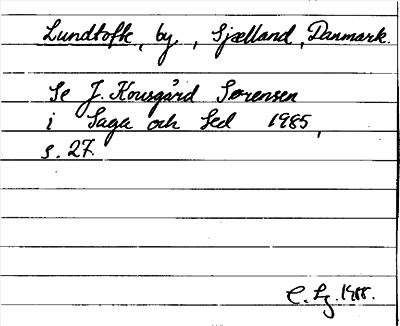 Lundtofte, by, Sjælland, Danmark.
Se J. Kousgård Sørensen
i Saga och Sed 1985,
s. 27.
C. Lg. 1988.